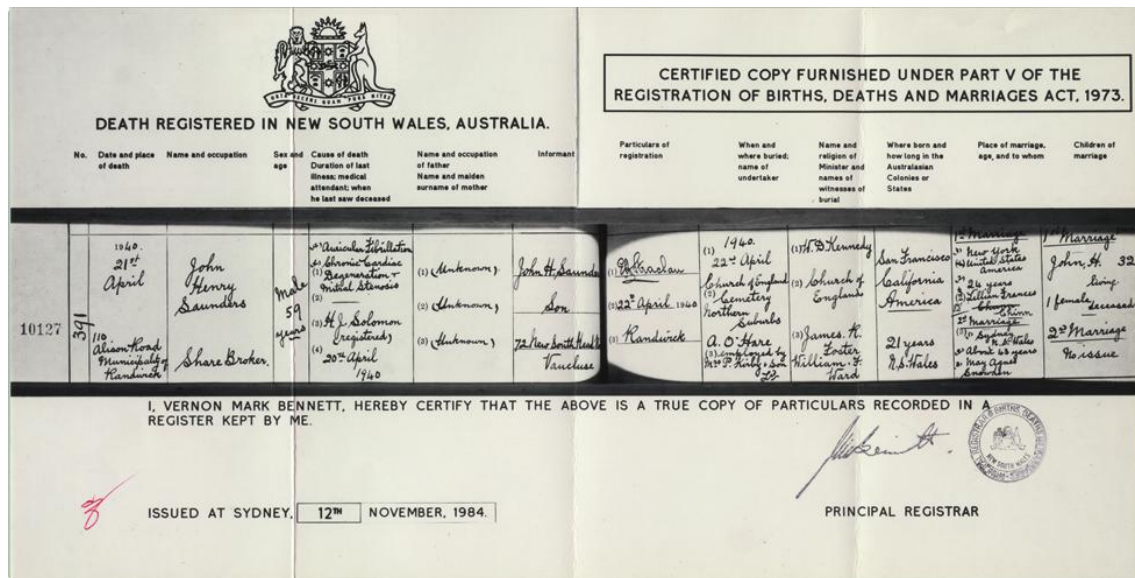 DEATH REGISTERED IN NEW SOUTH WALES, AUSTRALIA.
CERTIFIED COPY FURNISHED UNDER PART V OF THE
REGISTRATION OF BIRTHS, DEATHS AND MARRIAGES ACT, 1973.
No.
Date and place
of death
Name and occupation
Sex and
age
Cause of death
Duration of last
illness; medical
attendant; when
he last saw deceased
Name and occupation
of father
Name and maiden
surname of mother
Informant
Particulars of
registration
When and
where buried;
name of
undertaker
Name and
religion of
Minister and
names of
witnesses of
burial
Where born and
how long in the
Australasian
Colonies or
States
Place of marriage,
age, and to whom
Children of
marriage
10127
391
1940.
21st
April
110
Alison Road
Municipality of
Randwick
John
Henry
Saunders
Share Broker.
Male
59
years
(1) Auricular Fibrillation
Chronic Cardiac
Degeneration +
Mitral Stenosis
(2)
(3) H J. Solomon
(registered)
(4)
20th April
1940
(1) (Unknown)
(2) (Unknown)
(3) (Unknown)
John H. Saunders
Son
72 New South Head Rd
Vaucluse
(1)
(2) 22nd April 1940
(3) Randwick
(1) 1940.
22nd April
Church of England
(2) Cemetery
Northern
Suburbs
A. O'Hare
(3) employed by
Mrs P. Kirby & Son
Ld
(1) W. D. Kennedy
(2) Church of
England
(3) James. R.
Foster
William. F.
Ward
San Francisco
California
America
21 years
N.S. Wales
1st Marriage
New York
United States
America
24 years
Lillian Frances
Chinn
2nd Marriage
Sydney
N.S. Wales
About 43 years
May Agnes
Snowden
1st Marriage
John, H. 32
living
1 female, deceased
2nd Marriage
No issue
I, VERNON MARK BENNETT, HEREBY CERTIFY THAT THE ABOVE IS A TRUE COPY OF PARTICULARS RECORDED IN A
REGISTER KEPT BY ME.
NEW SOUTH WALES
ISSUED AT SYDNEY, 12TH NOVEMBER, 1984.
PRINCIPAL REGISTRAR